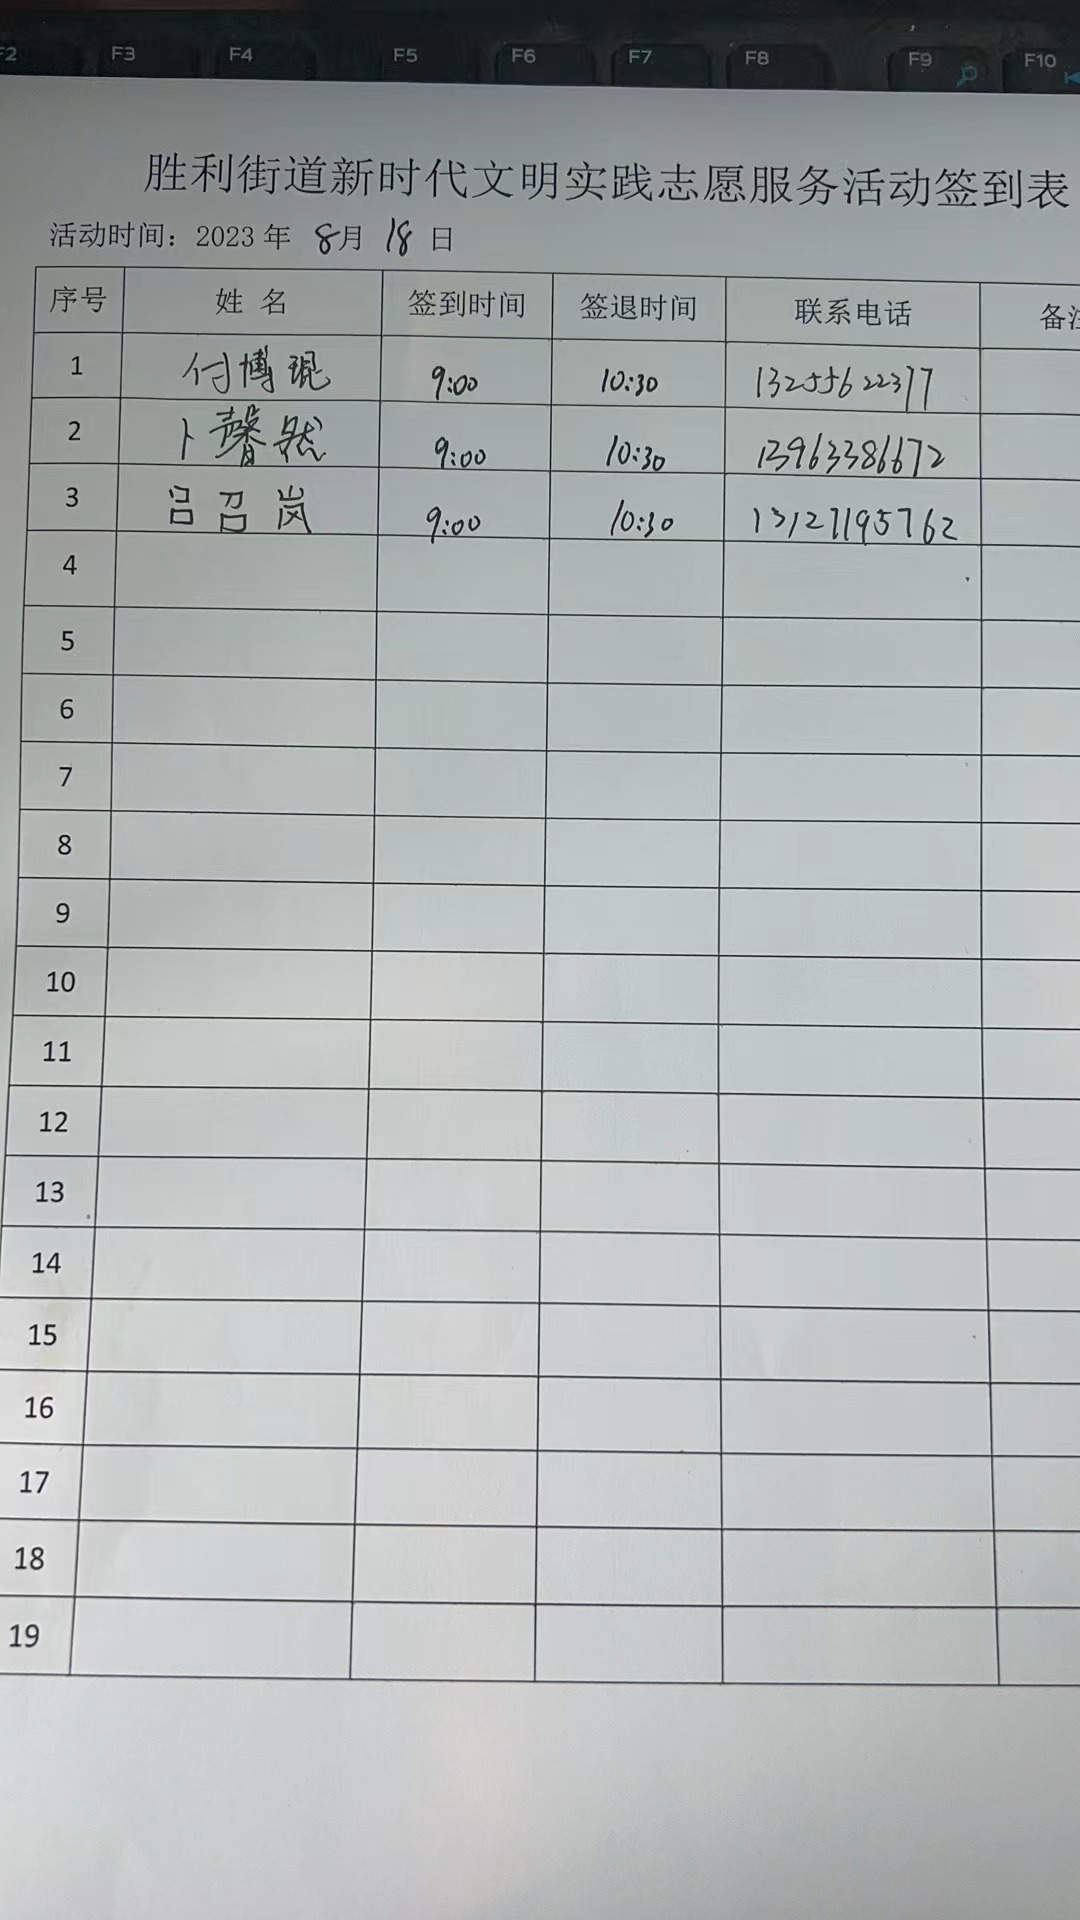 F2 F3 F4 F5 F6 F7 F8 F9 F10
胜利街道新时代文明实践志愿服务活动签到表
活动时间：2023 年 8月 18 日
序号 姓 名 签到时间 签退时间 联系电话 备注
1 付博琨 9:00 10:30 13255622377
2 卜馨然 9:00 10:30 13963386672
3 吕召岚 9:00 10:30 13127195762
4
5
6
7
8
9
10
11
12
13
14
15
16
17
18
19